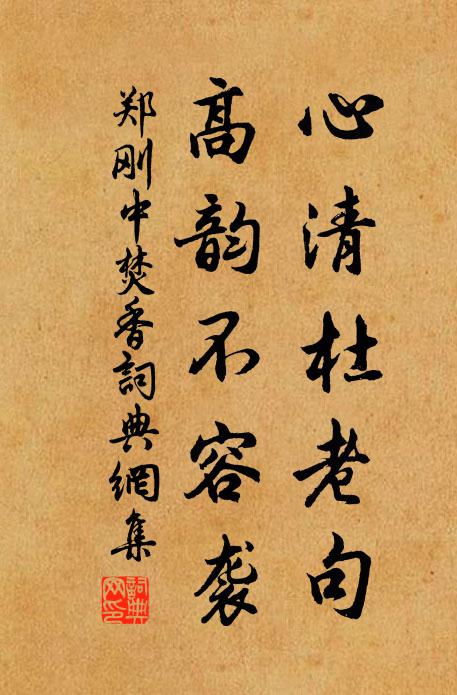 心清杜老句
高韵不容袭
郑刚中焚香詞典網集
詞典
网印